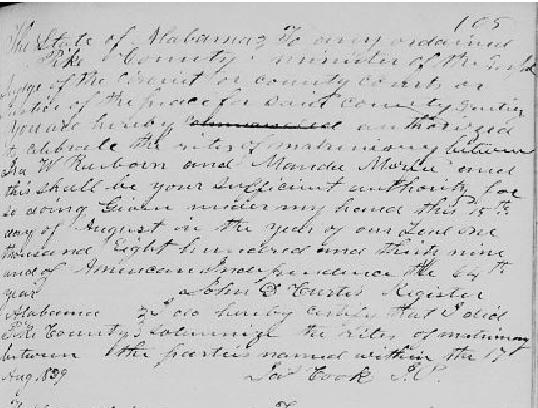 105
The State of Alabama } To any ordained
Pike County } minister of the Gospel
Judge of the Circuit or county courts or
Justice of the peace for said county Greeting
You are hereby authorized
to celebrate the rites of matrimony between
Ira W Rayborn and Manda and
this shall be your sufficient authority for
so doing Given under my hand this 15th
day of August in the year of our Lord one
thousand Eight hundred and thirty nine
and of American Independence the 64th
year John D Curtis Register
Alabama } I do hereby certify that I did
Pike County } Solemnize the rites of matrimony
between the parties named within the 17
Aug. 1839 Jas Cook J.P.